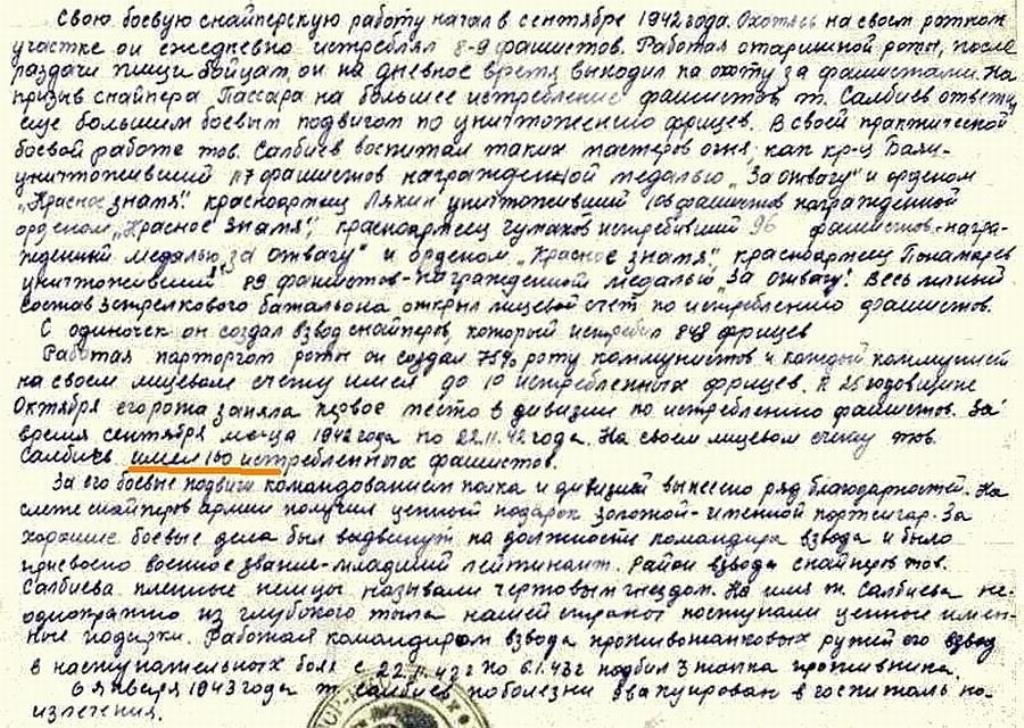 Свою боевую снайперскую работу начал в сентябре 1942 года. Охотясь на своем ротном
участке он ежедневно истреблял 8-9 фашистов. Работая старшиной роты, после
раздачи пищи бойцам, он на дневное время выходил на охоту за фашистами. На
призыв снайпера Пассара на большее истребление фашистов т. Салбиев ответил
еще большим боевым подвигом по уничтожению фрицев. В своей практической
боевой работе тов. Салбиев воспитал таких мастеров огня, как кр-ц
уничтоживший 117 фашистов награжденной медалью „За отвагу" и орденом
„Красное знамя". красноармеец Лякин уничтоживший 106 фашистов награжденной
орденом „Красное Знамя", красноармеец Чумаков истребивший 96 фашистов-награ-
жденный медалью „за отвагу" и орденом „Красное знамя", красноармеец Понамарев
уничтоживший 89 фашистов-награжденный медалью „За отвагу". Весь личный
состав 3 стрелкового батальона открыл лицевой счет по истреблению фашистов.
С одиночек он создал взвод снайперов, который истребил 848 фрицев
Работая парторгом роты он создал 75% роту коммунистов и каждый коммунист
на своем лицевом счету имел до 10 истребленных фрицев. К 25 годовщине
Октября его рота заняла первое место в дивизии по истреблению фашистов. За
время сентября м-ца 1942 года по 22.11.42 года. На своем лицевом счету тов.
Салбиев имел 160 истребленных фашистов.
За его боевые подвиги командованием полка и дивизией вынесено ряд благодарностей. На
слете снайперов армии получил ценный подарок золотой-именной портсигар. За
хорошие боевые дела был выдвинут на должность командира взвода и было
присвоено военное звание-младший лейтинант. Район взвода снайперов тов.
Салбиева пленные немцы называли чертовым гнездом. На имя т. Салбиева не-
однократно из глубокого тыла нашей страны поступали ценные имен-
ные подарки. Работая командиром взвода противотанковых ружей его взвод
в наступательных боях с 22.11.42 г по 6.1.43 г подбил 3 танка противника.
6 января 1943 года т. Салбиев по болезни эвакуирован в госпиталь на
излечения.